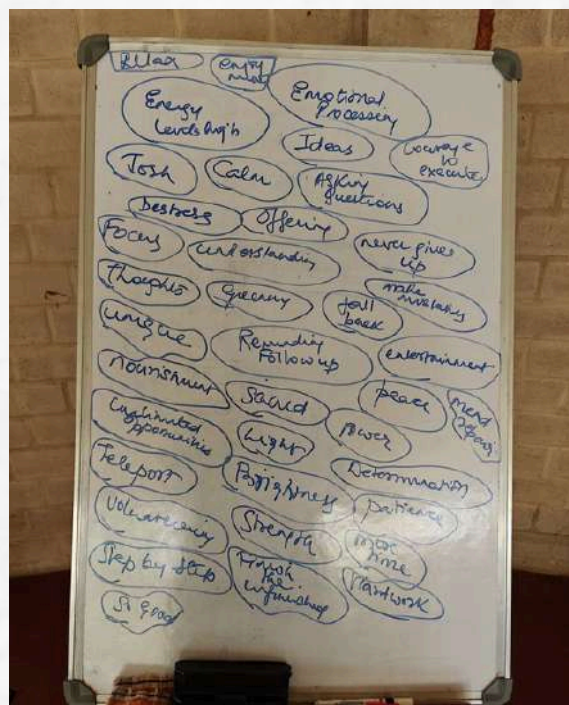 Relax
empty
mind
Emotional
Processing
Energy
Levels high
Ideas
courage
to
execute
Josh
Calm
Asking
Questions
Destress
Offering
Focus
understanding
never gives
up
Thoughts
make
mistakes
fall
back
unique
Reminding
Follow up
entertainment
Nourishment
Sacred
peace
mend
Unlimited
opportunities
Light
Power
Determination
Teleport
Brightness
patience
Volunteering
Strength
more
time
Step by Step
Finish
The
unfinished
Hardwork
So good